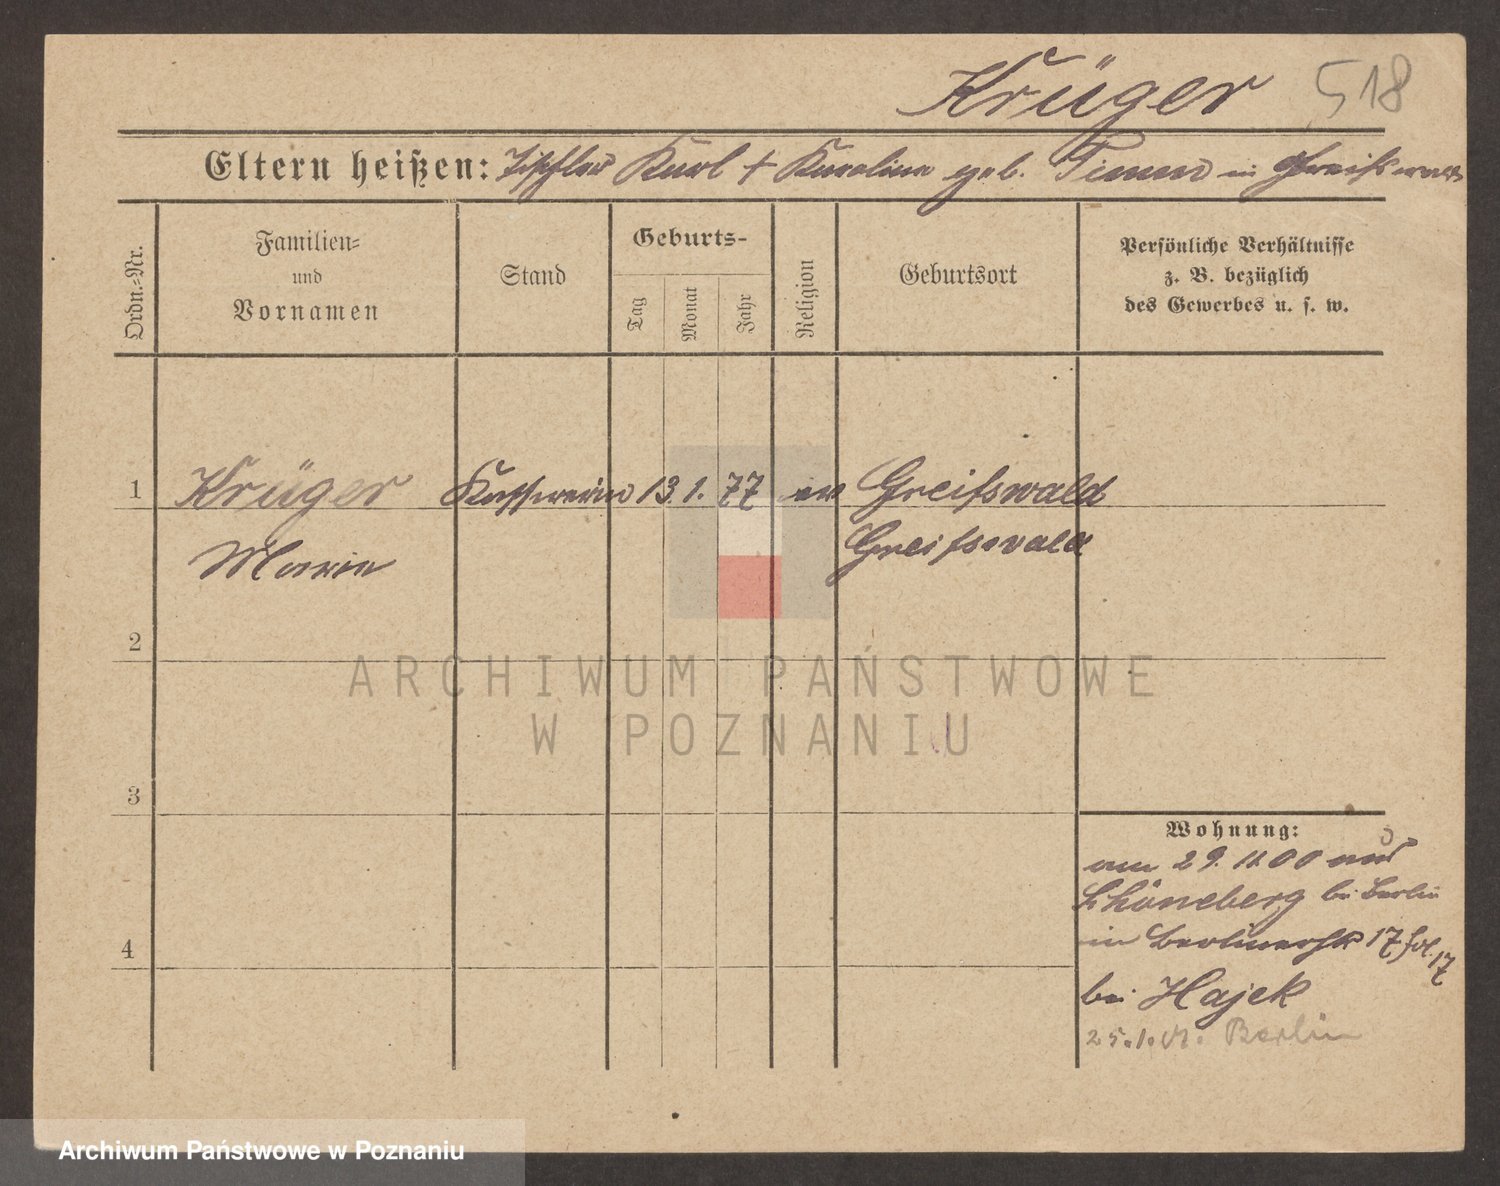 Krüger 518
Eltern heißen: Tischler Karl + Karoline geb. Timm in Greifswald
Ordn.-Nr.
Familien-
und
Vornamen
Stand
Geburts-
Tag
Monat
Jahr
Religion
Geburtsort
Persönliche Verhältnisse
z. B. bezüglich
des Gewerbes u. s. w.
1 Krüger 13 1. 77 ev Greifswald
Marie Greifswald
2
ARCHIWUM PAŃSTWOWE
W POZNANIU
3
Wohnung:
am 29. 11. 00 aus
Schöneberg bei Berlin
in Berlinerstr 17
4
bei Hajek
25. 1. 01. Berlin
Archiwum Państwowe w Poznaniu